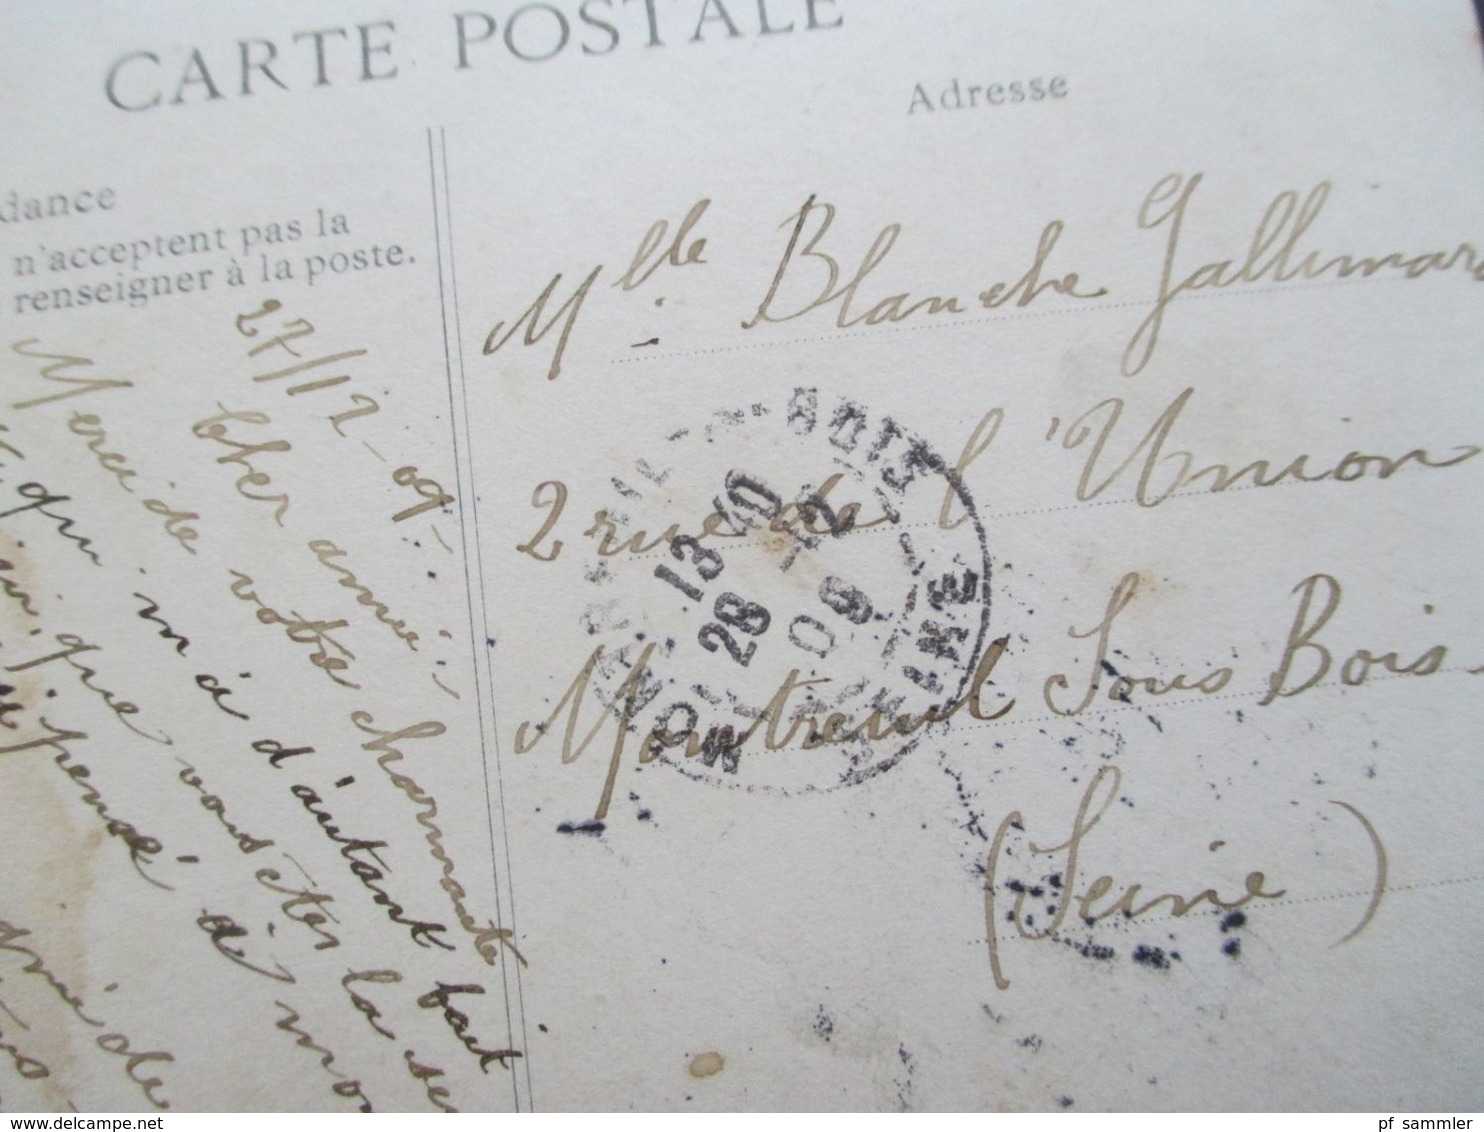 CARTE POSTALE
Adresse
dance
n'acceptent pas la
renseigner à la poste.
27/12-09-
Cher amie;
Merci de votre charmante
qui m'a d'autant fait
que vous êtes la se
pensé à mo
amie de
Mlle Blanche Gallimar
2 rue de l'Union
Montreuil Sous Bois
(Seine)
MONTREUIL-S-BOIS
13 40
28 -12
09
SEINE
delcampe.net
pf_sammler